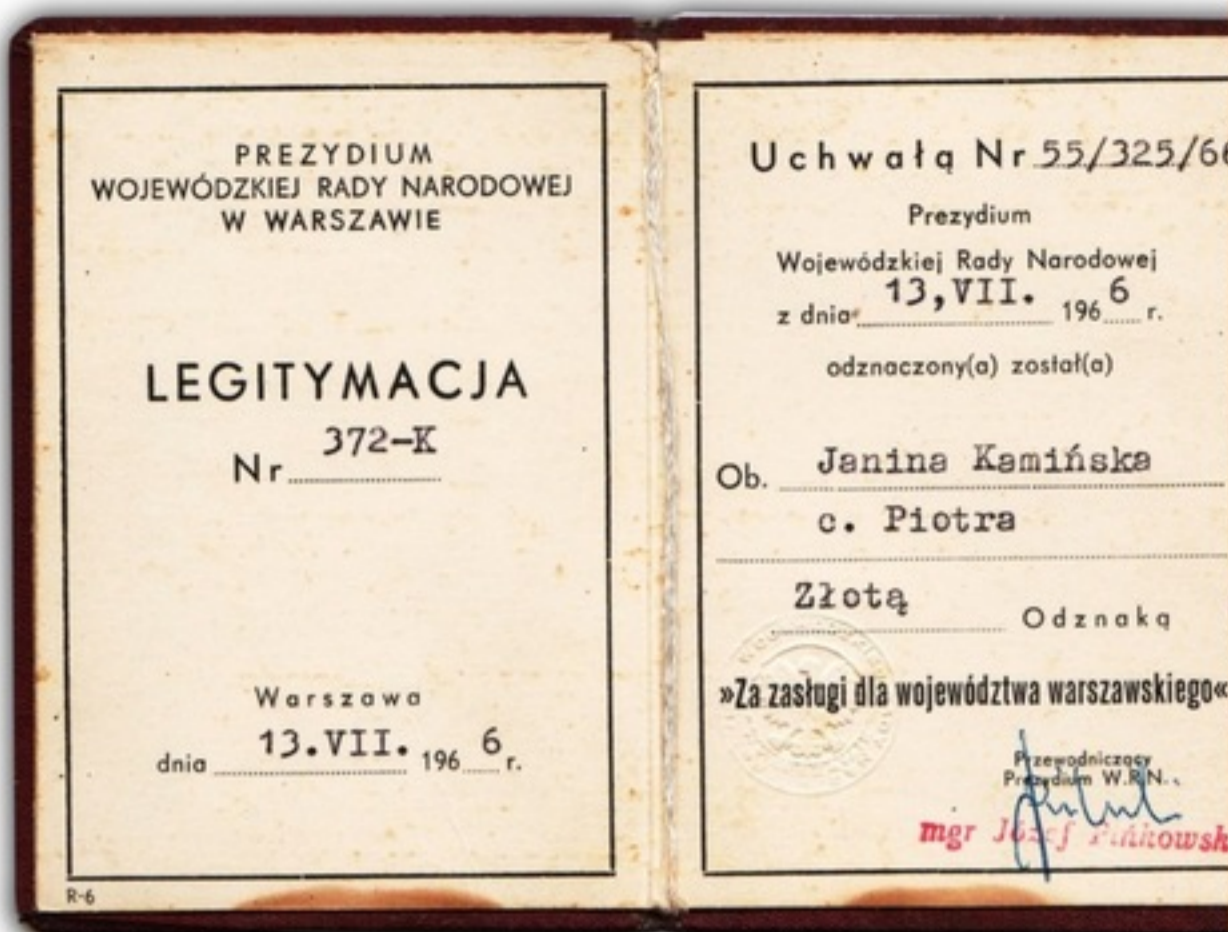 PREZYDIUM
WOJEWÓDZKIEJ RADY NARODOWEJ
W WARSZAWIE
LEGITYMACJA
Nr 372-K
Warszawa
dnia 13.VII. 1966 r.
R-6
Uchwałą Nr 55/325/66
Prezydium
Wojewódzkiej Rady Narodowej
z dnia 13,VII. 1966 r.
odznaczony(a) został(a)
Ob. Janina Kamińska
c. Piotra
Złotą Odznaką
»Za zasługi dla województwa warszawskiego«
Przewodniczący
Prezydium W.R.N.
mgr Józef